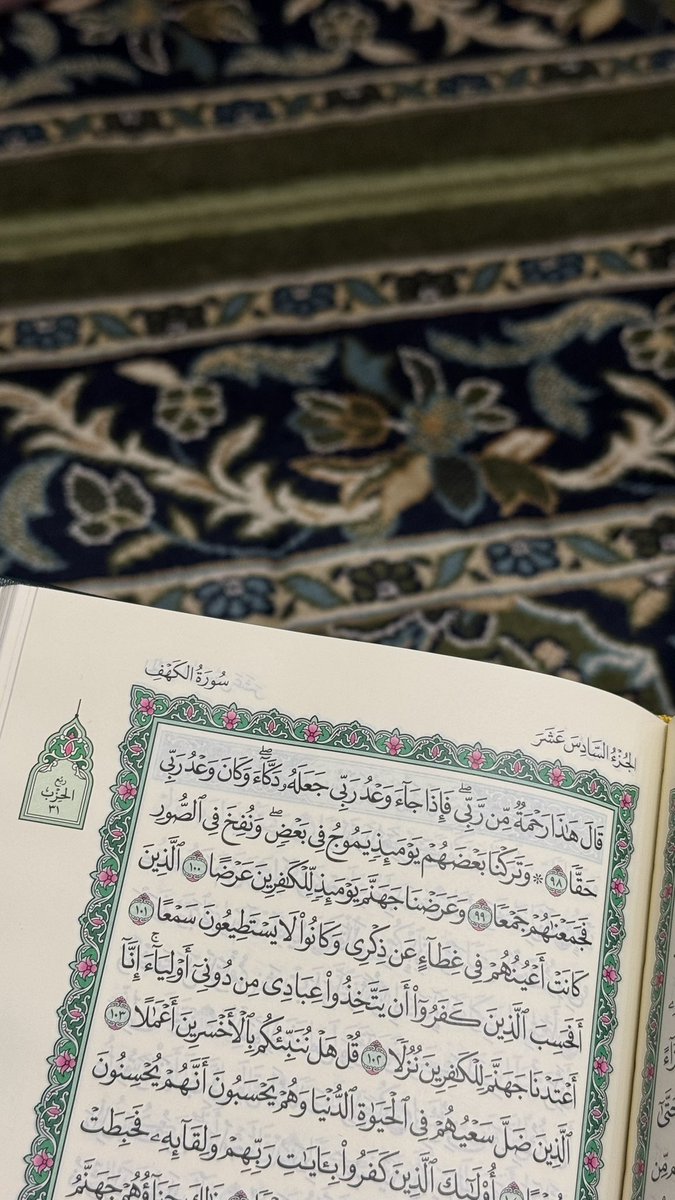 سُورَةُ الكَهْفِ
الجُزْءُ السَّادِسَ عَشَرَ
رُبْعُ
الحِزْبِ
٣١
قَالَ هَٰذَا رَحْمَةٌ مِّن رَّبِّي ۖ فَإِذَا جَآءَ وَعْدُ رَبِّي جَعَلَهُۥ دَكَّآءَ ۖ وَكَانَ وَعْدُ رَبِّي
حَقًّا ٩٨ ۞ وَتَرَكْنَا بَعْضَهُمْ يَوْمَئِذٍ يَمُوجُ فِي بَعْضٍ ۖ وَنُفِخَ فِي ٱلصُّورِ
فَجَمَعْنَٰهُمْ جَمْعًا ٩٩ وَعَرَضْنَا جَهَنَّمَ يَوْمَئِذٍ لِّلْكَٰفِرِينَ عَرْضًا ١٠٠ ٱلَّذِينَ
كَانَتْ أَعْيُنُهُمْ فِي غِطَآءٍ عَن ذِكْرِي وَكَانُوا۟ لَا يَسْتَطِيعُونَ سَمْعًا ١٠١
أَفَحَسِبَ ٱلَّذِينَ كَفَرُوٓا۟ أَن يَتَّخِذُوا۟ عِبَادِي مِن دُونِيٓ أَوْلِيَآءَ ۚ إِنَّآ
أَعْتَدْنَا جَهَنَّمَ لِلْكَٰفِرِينَ نُزُلًا ١٠٢ قُلْ هَلْ نُنَبِّئُكُم بِٱلْأَخْسَرِينَ أَعْمَٰلًا ١٠٣
ٱلَّذِينَ ضَلَّ سَعْيُهُمْ فِي ٱلْحَيَوٰةِ ٱلدُّنْيَا وَهُمْ يَحْسَبُونَ أَنَّهُمْ يُحْسِنُونَ
أُو۟لَٰٓئِكَ ٱلَّذِينَ كَفَرُوا۟ بِـَٔايَٰتِ رَبِّهِمْ وَلِقَآئِهِۦ فَحَبِطَتْ
جَزَآؤُهُمْ جَهَنَّمُ